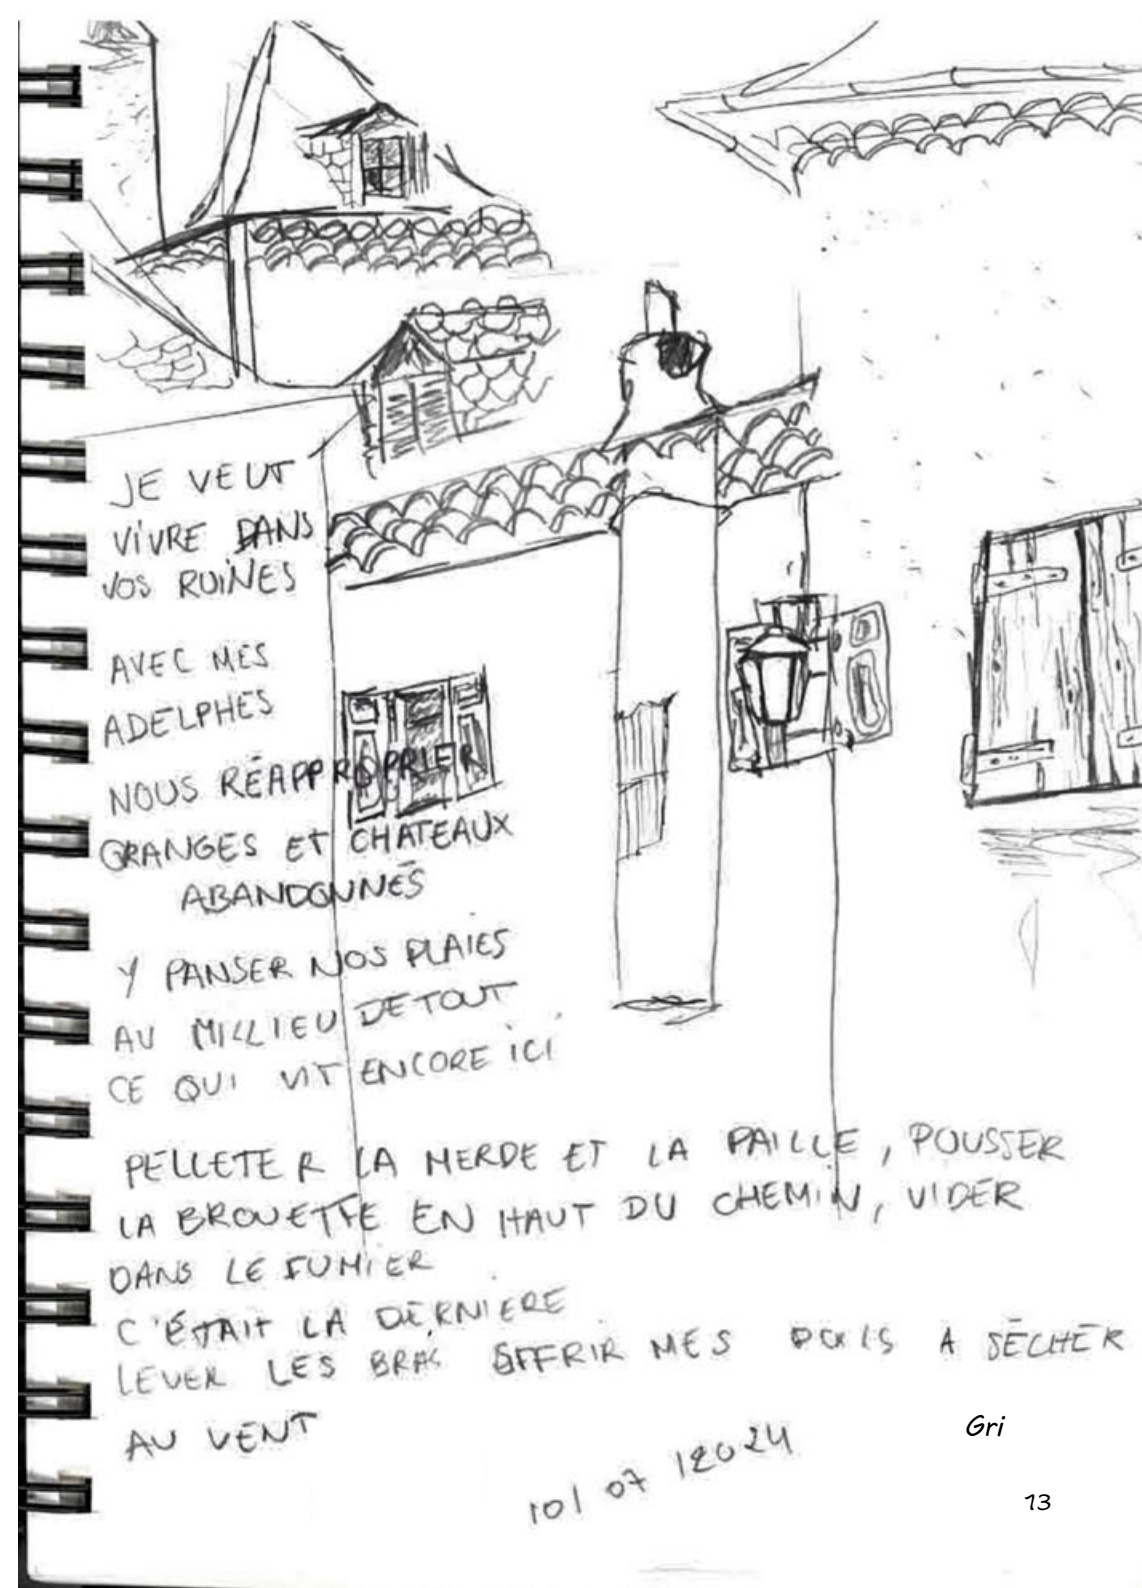 JE VEUT
VIVRE DANS
VOS RUINES
AVEC MES
ADELPHES
NOUS RÉAPPROPRIER
GRANGES ET CHATEAUX
ABANDONNÉS
Y PANSER NOS PLAIES
AU MILLIEU DE TOUT
CE QUI VIT ENCORE ICI
PELLETER LA MERDE ET LA PAILLE, POUSSER
LA BROUETTE EN HAUT DU CHEMIN, VIDER
DANS LE FUMIER
C'ÉTAIT LA DERNIERE
LEVER LES BRAS OFFRIR MES POILS A SÉCHER
AU VENT
Gri
10/07/2024
13